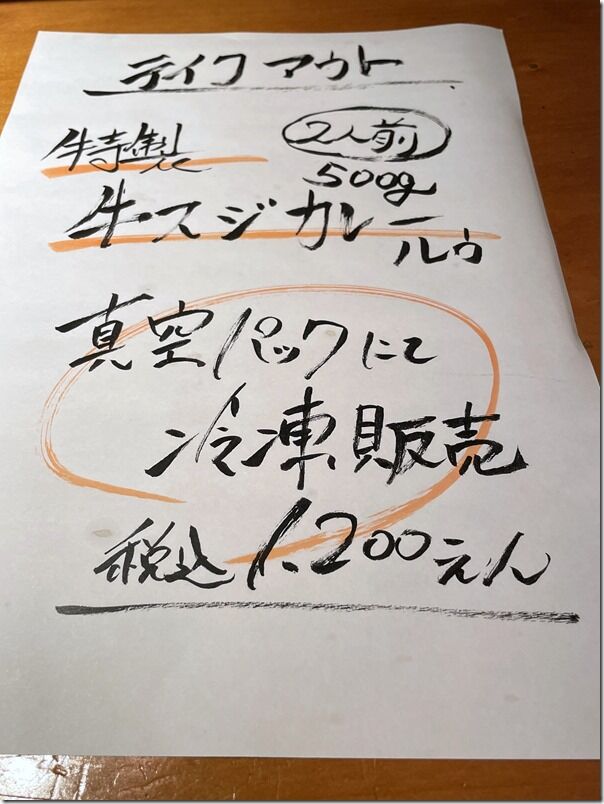 テイクアウト
特製
2人前
500g
牛スジカレールウ
真空パックにて
冷凍販売
税込1,200えん